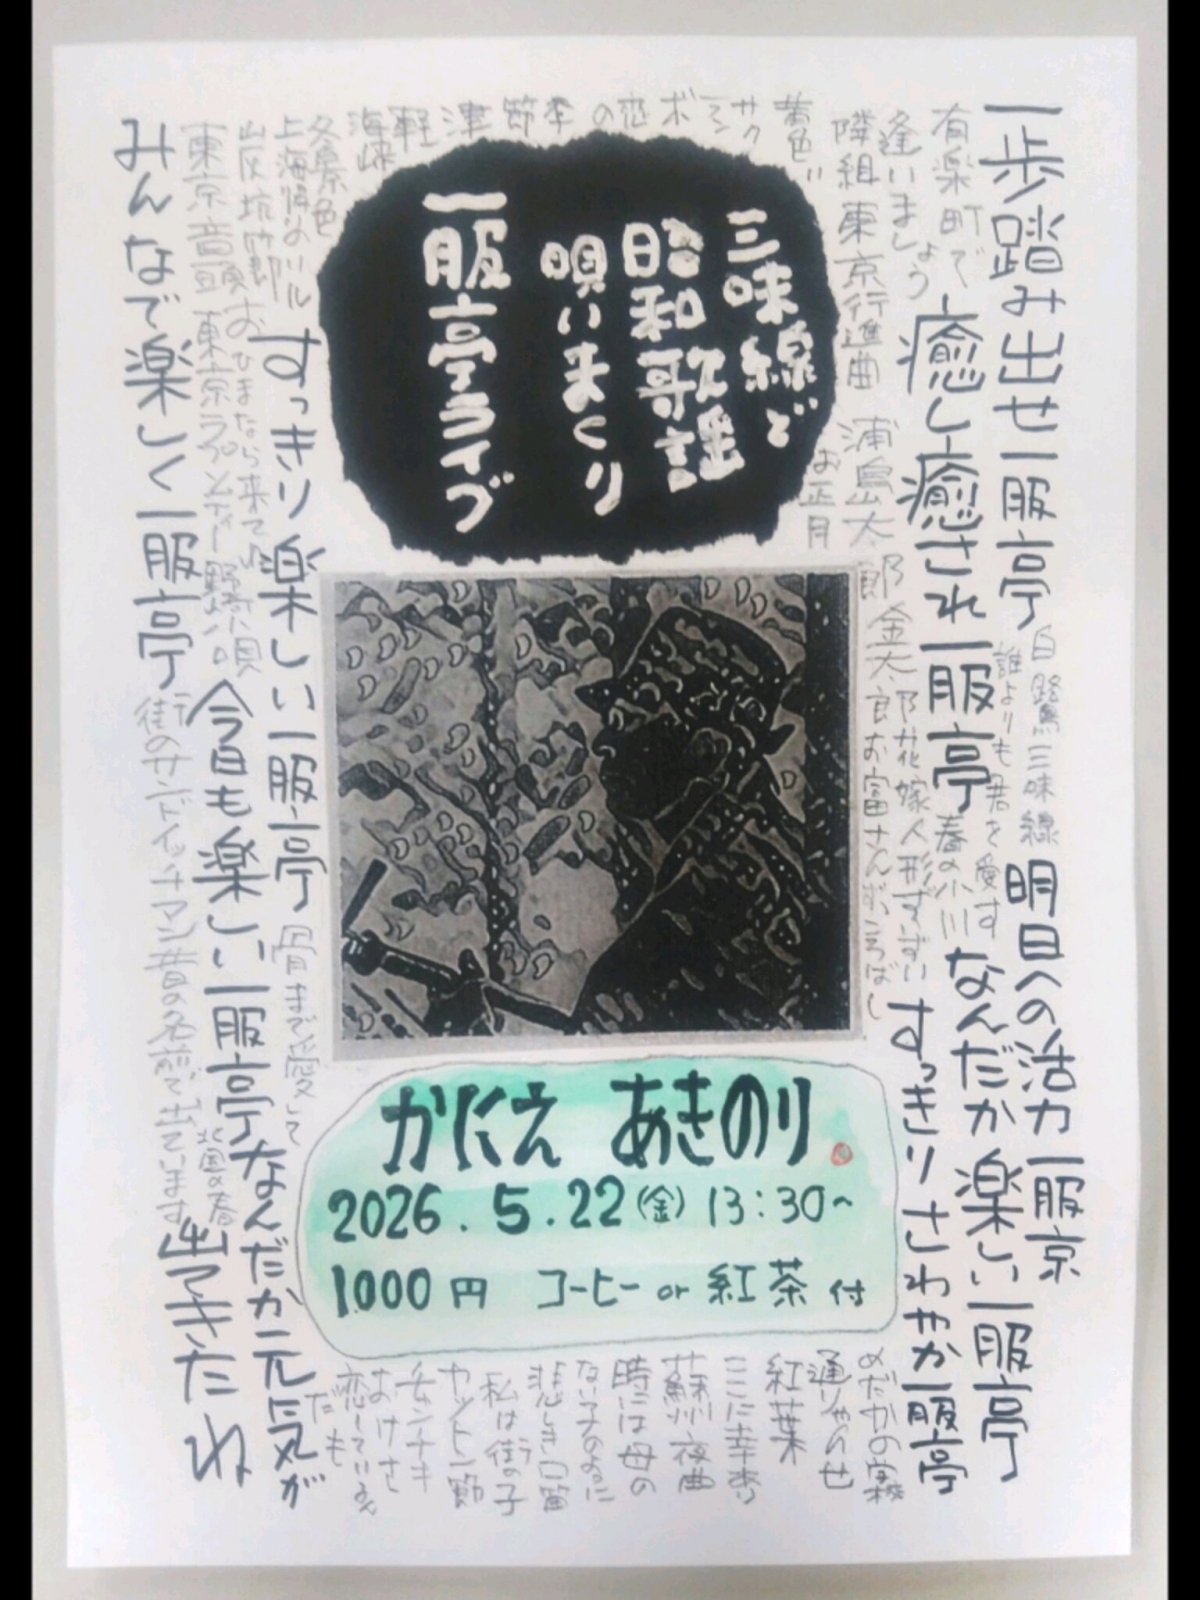 三味線で
昭和歌謡
唄いまくり
一服亭ライブ
かにえ あきのり
2026.5.22(金) 13:30~
1000円 コーヒー or 紅茶 付
一歩踏み出せ一服亭
白鷺三味線
明日への活力一服亭
有楽町で
逢いましょう
癒し癒され一服亭
誰よりも君を愛す
春の小川
なんだか楽しい一服亭
隣組 東京行進曲 浦島太郎 金太郎 花嫁人形 ずいずいずっころばし
お富さん
お正月
すっきりさわやか一服亭
黄色い
サクランボ
恋の季節
津軽海峡
冬景色
上海帰りのリル
すっきり楽しい一服亭
骨まで愛して
なんだか元気が
出てきたね
山灰坑節
おひまなら来てね
東京音頭 東京ラプソディー 野球小唄
今日も楽しい一服亭
北国の春
みんなで楽しく一服亭
街のサンドイッチマン 昔の名前で出ています
めだかの学校
通りゃんせ
紅葉
ここに幸あり
蘇州夜曲
時には母の
ない子のように
悲しき口笛
私は街の子
ヤットン節
チャンチキ
おけさ
恋しているんだもん